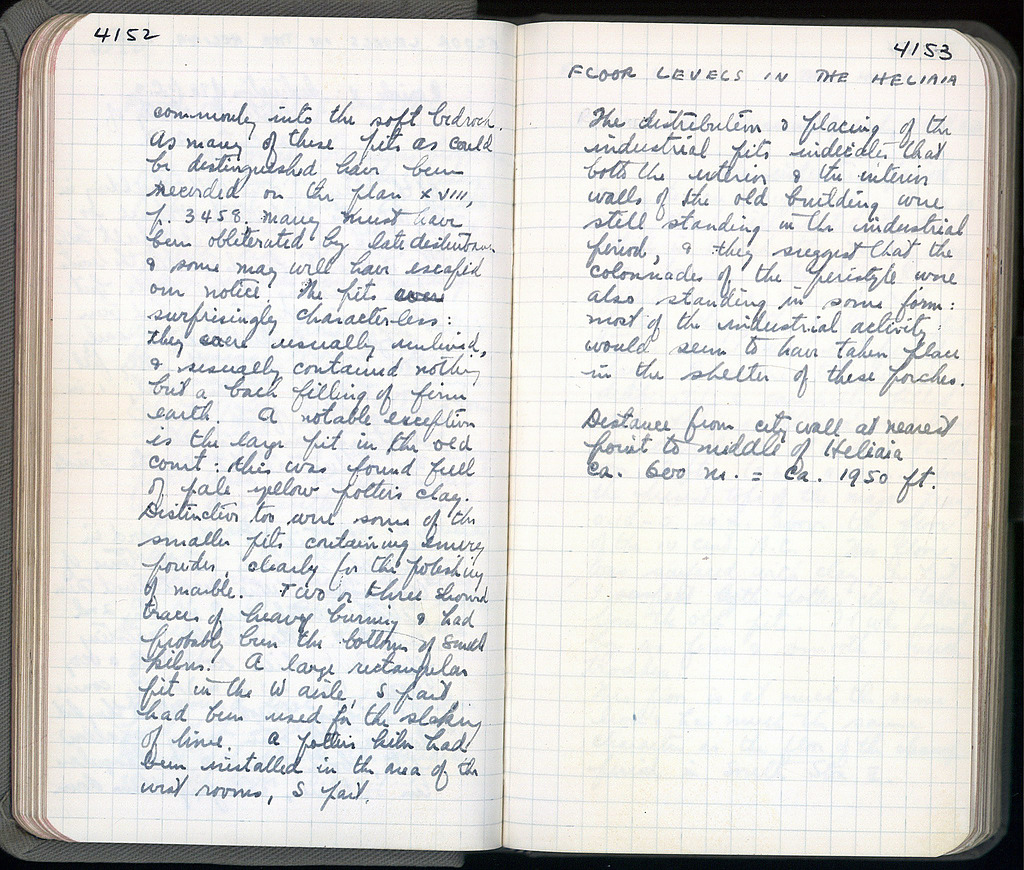 4152
commonly into the soft bedrock.
As many of these pits as could
be distinguished have been
recorded on the plan XVIII,
p. 3458. Many must have
been obliterated by late disturbance
& some may well have escaped
our notice. The pits
surprisingly characterless:
they were usually unlined,
& usually contained nothing
but a back filling of firm
earth. A notable exception
is the large pit in the old
court: this was found full
of pale yellow potter's clay.
Distinctive too were some of the
smaller pits containing emery
powder, clearly for the polishing
of marble. Two or three showed
traces of heavy burning & had
probably been the bottoms of small
kilns. A large rectangular
pit in the W aisle, S part,
had been used for the slaking
of lime. A potter's kiln had
been installed in the area of the
west rooms, S part.
4153
FLOOR LEVELS IN THE HELIAIA
The distribution & placing of the
industrial pits indicates that
both the interior & the interior
walls of the old building were
still standing in the industrial
period, & they suggest that the
colonnades of the peristyle were
also standing in some form:
most of the industrial activity
would seem to have taken place
in the shelter of these porches.
Distance from city wall at nearest
point to middle of Heliaia
ca. 600 m. = ca. 1950 ft.